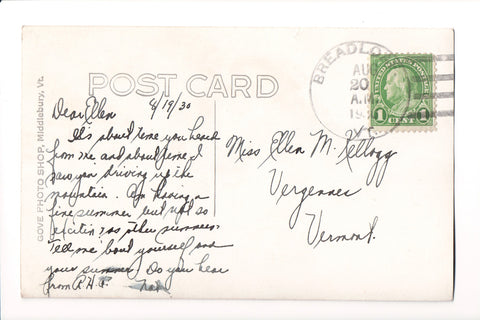 POST CARD
GOVE PHOTO SHOP, Middlebury, Vt.
BREADLO
AU
20
A.M.
19
VT.
1 CENT 1
Dear Ellen 8/19/30
It's about time you heard
from me and about time I
saw you driving up the
mountain. Am having a
fine summer but not so
exciting as other summers.
Tell me 'bout yourself and
your summer. Do you hear
from R.H.P.
Miss Ellen M. Kellogg
Vergennes
Vermont.